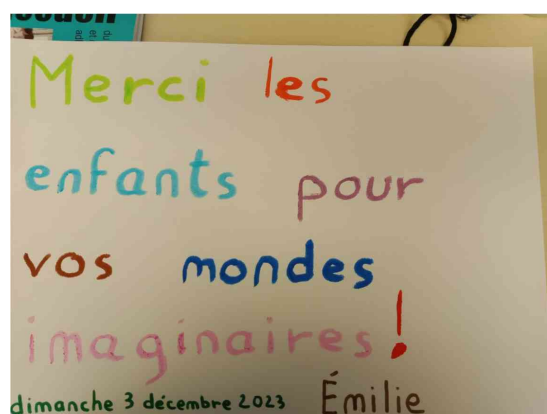 Merci les
enfants pour
vos mondes
imaginaires !
dimanche 3 décembre 2023 Émilie